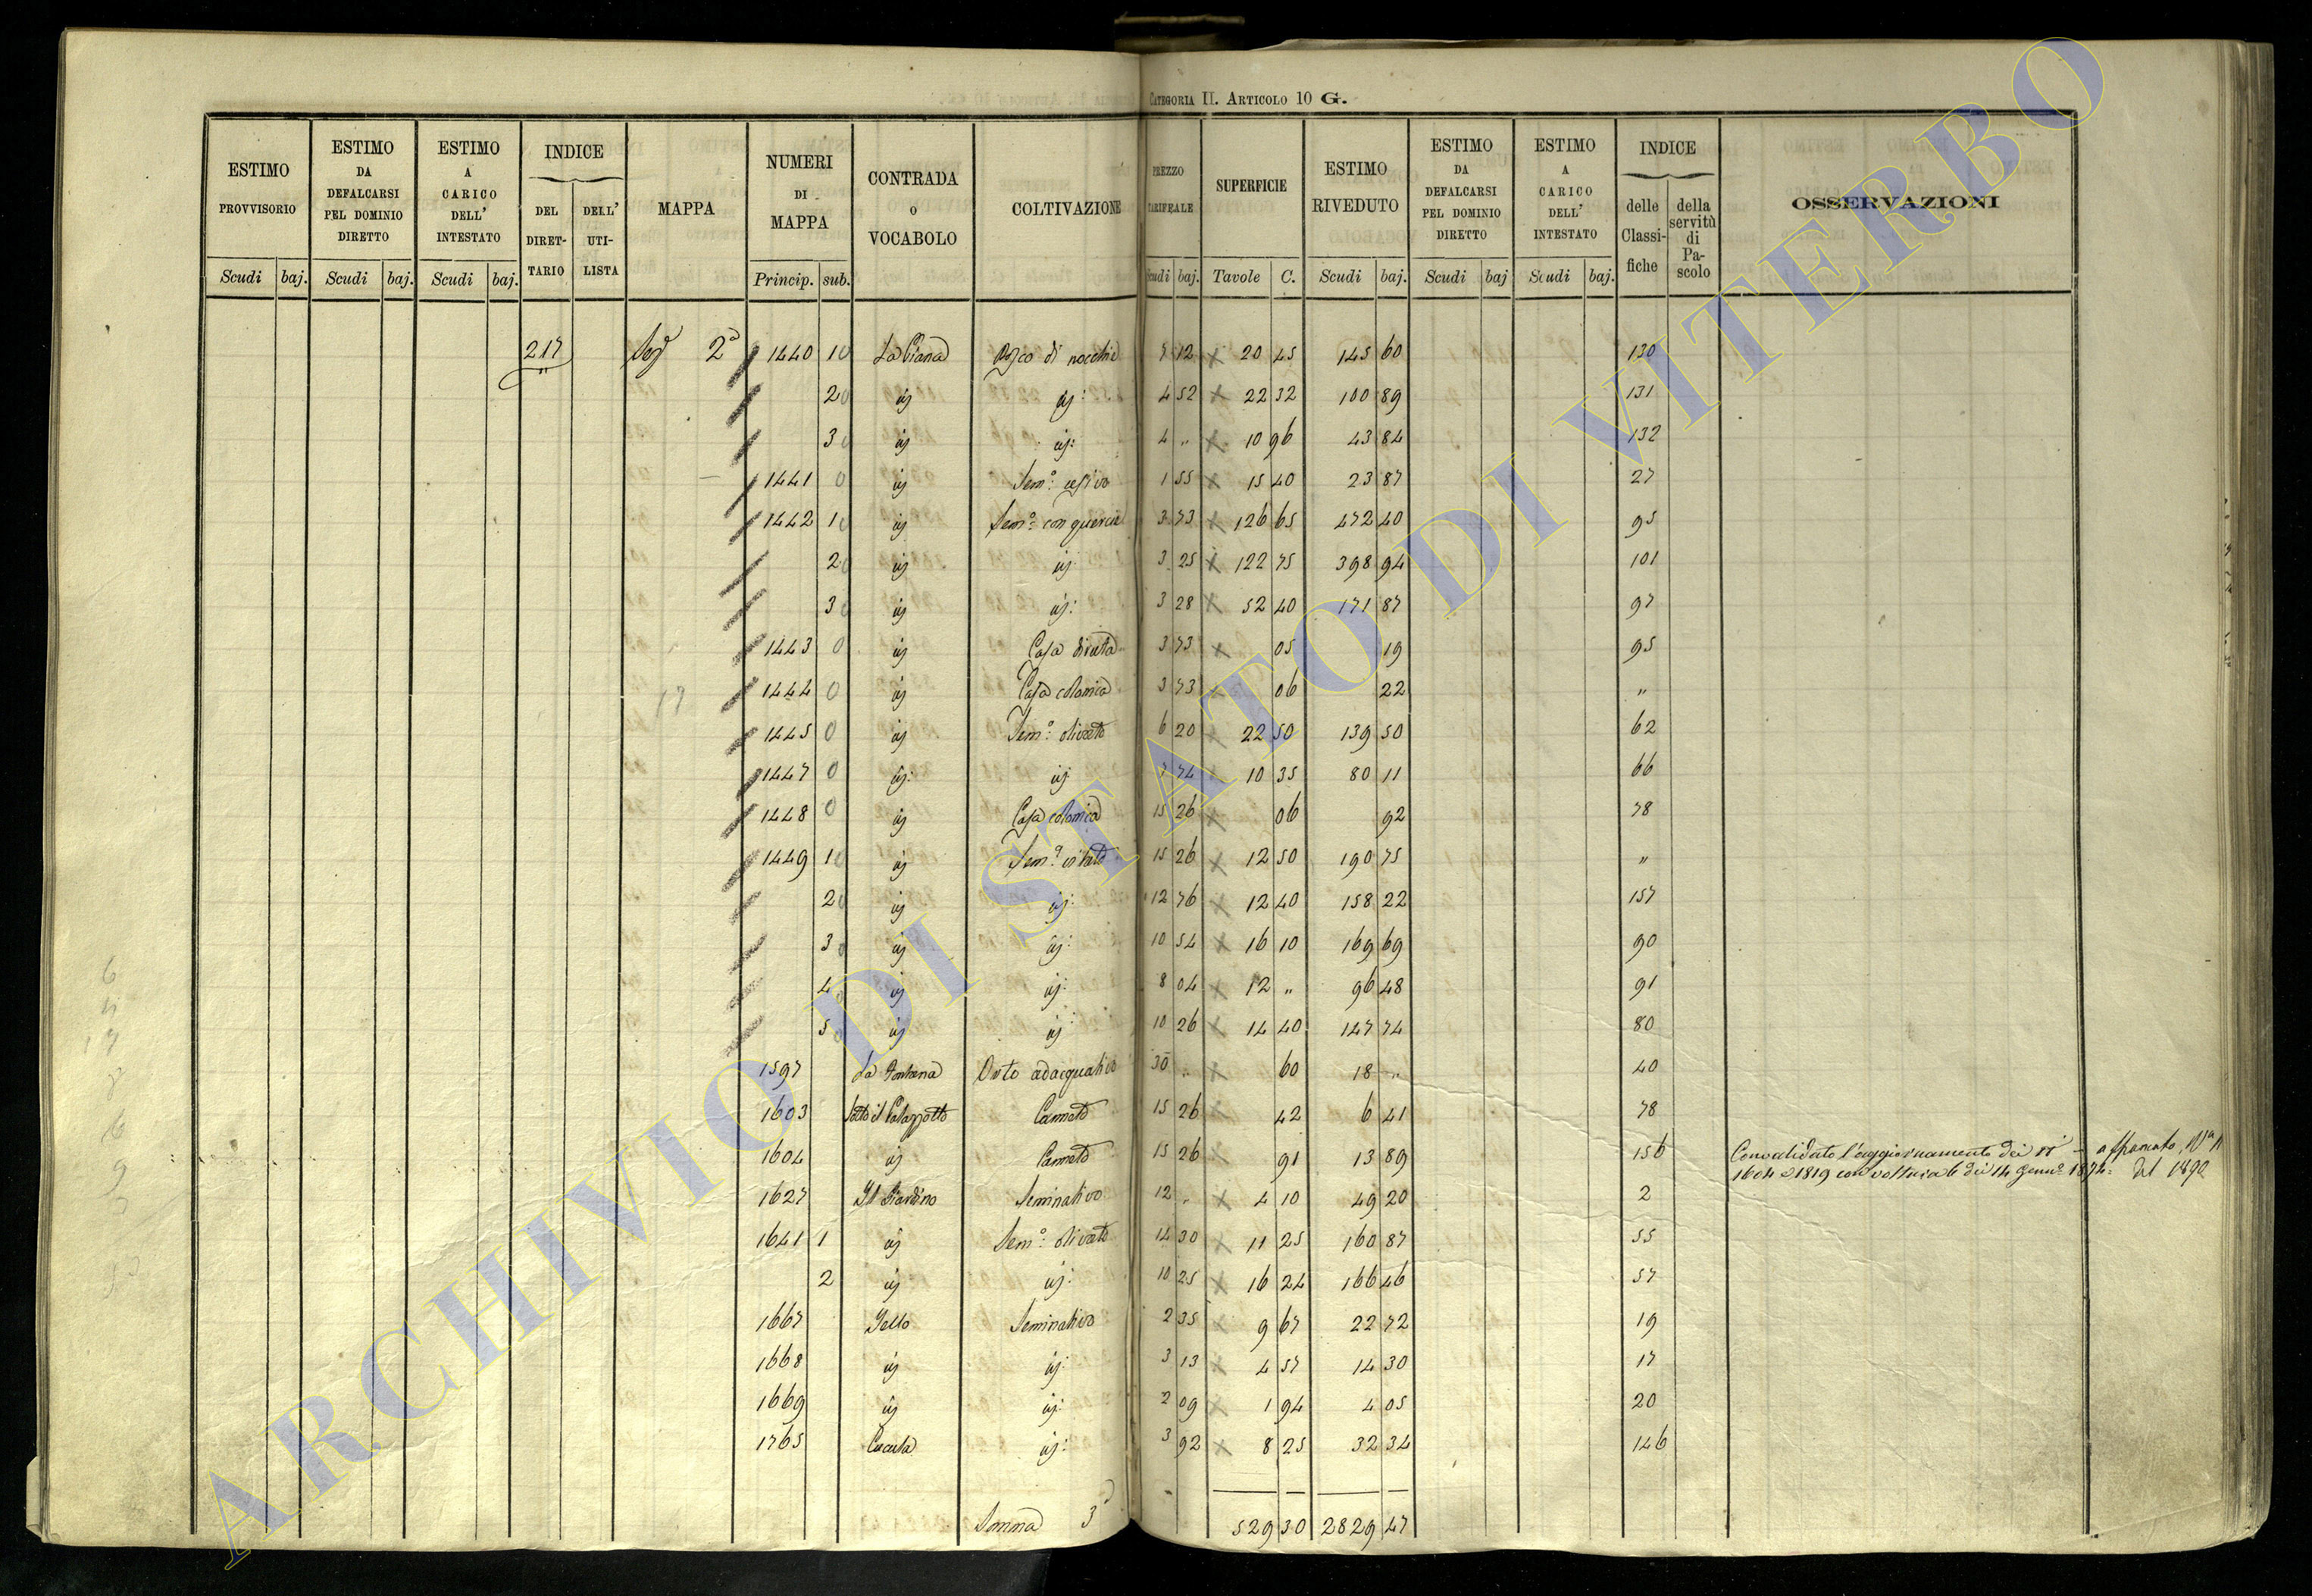 CATEGORIA II. ARTICOLO 10 G.
ESTIMO PROVVISORIO Scudi baj.
ESTIMO DA DEFALCARSI PEL DOMINIO DIRETTO Scudi baj.
ESTIMO A CARICO DELL' INTESTATO Scudi baj.
INDICE DEL DIRET-TARIO DELL' UTI-LISTA
MAPPA
NUMERI DI MAPPA Princip. sub.
CONTRADA O VOCABOLO
COLTIVAZIONE
PREZZO TARIFFALE Scudi baj.
SUPERFICIE Tavole C.
ESTIMO RIVEDUTO Scudi baj.
ESTIMO DA DEFALCARSI PEL DOMINIO DIRETTO Scudi baj
ESTIMO A CARICO DELL' INTESTATO Scudi baj.
INDICE delle Classi-fiche della servitù di Pa-scolo
OSSERVAZIONI
217 Seg 2a 1440 1 0 La Piana di nocchie 12 20 45 145 60 130
2 0 ij ij: 4 52 22 32 100 89 131
3 0 ij ij: 4 " 10 96 43 84 132
1441 0 ij Sem:o 1 55 15 40 23 87 27
1442 1 0 ij Sem:o con querce 3 73 126 65 472 40 95
2 0 ij ij 3 25 122 75 398 94 101
3 0 ij ij: 3 28 52 40 171 87 97
1443 0 ij Casa diruta 3 73 05 19 95
1444 0 ij Casa colonica 3 73 06 22 "
1445 0 ij Sem:o olivato 6 20 22 50 139 50 62
1447 0 ij: ij 7 74 10 35 80 11 66
1448 0 ij Casa colonica 15 26 06 92 78
1449 1 0 ij Sem:o vitato 15 26 12 50 190 75 "
2 0 ij ij: 12 76 12 40 158 22 157
3 0 ij ij: 10 54 16 10 169 69 90
4 0 ij ij: 8 04 12 " 96 48 91
5 0 ij ij 10 26 14 40 147 74 80
1597 La Fontana Orto adacquativo 30 " 60 18 " 40
1603 Sotto il Palazzotto Canneto 15 26 42 6 41 78
1604 ij Canneto 15 26 91 13 89 156 Convalidato l'aggiornamento dei n.i
1604 e 1819 con voltura 6 dei 14 Genn:o 1874:
del 1890
1627 Il Giardino Seminativo 12 " 4 10 49 20 2
1641 1 ij Sem:o olivato 14 30 11 25 160 87 55
2 ij ij: 10 25 16 24 166 46 57
1667 Jello Seminativo 2 35 9 67 22 72 19
1668 ij ij: 3 13 4 57 14 30 17
1669 ij ij: 2 09 1 94 4 05 20
1765 Cucula ij: 3 92 8 25 32 34 146
Somma 529 30 2829 47
ARCHIVIO DI STATO DI VITERBO